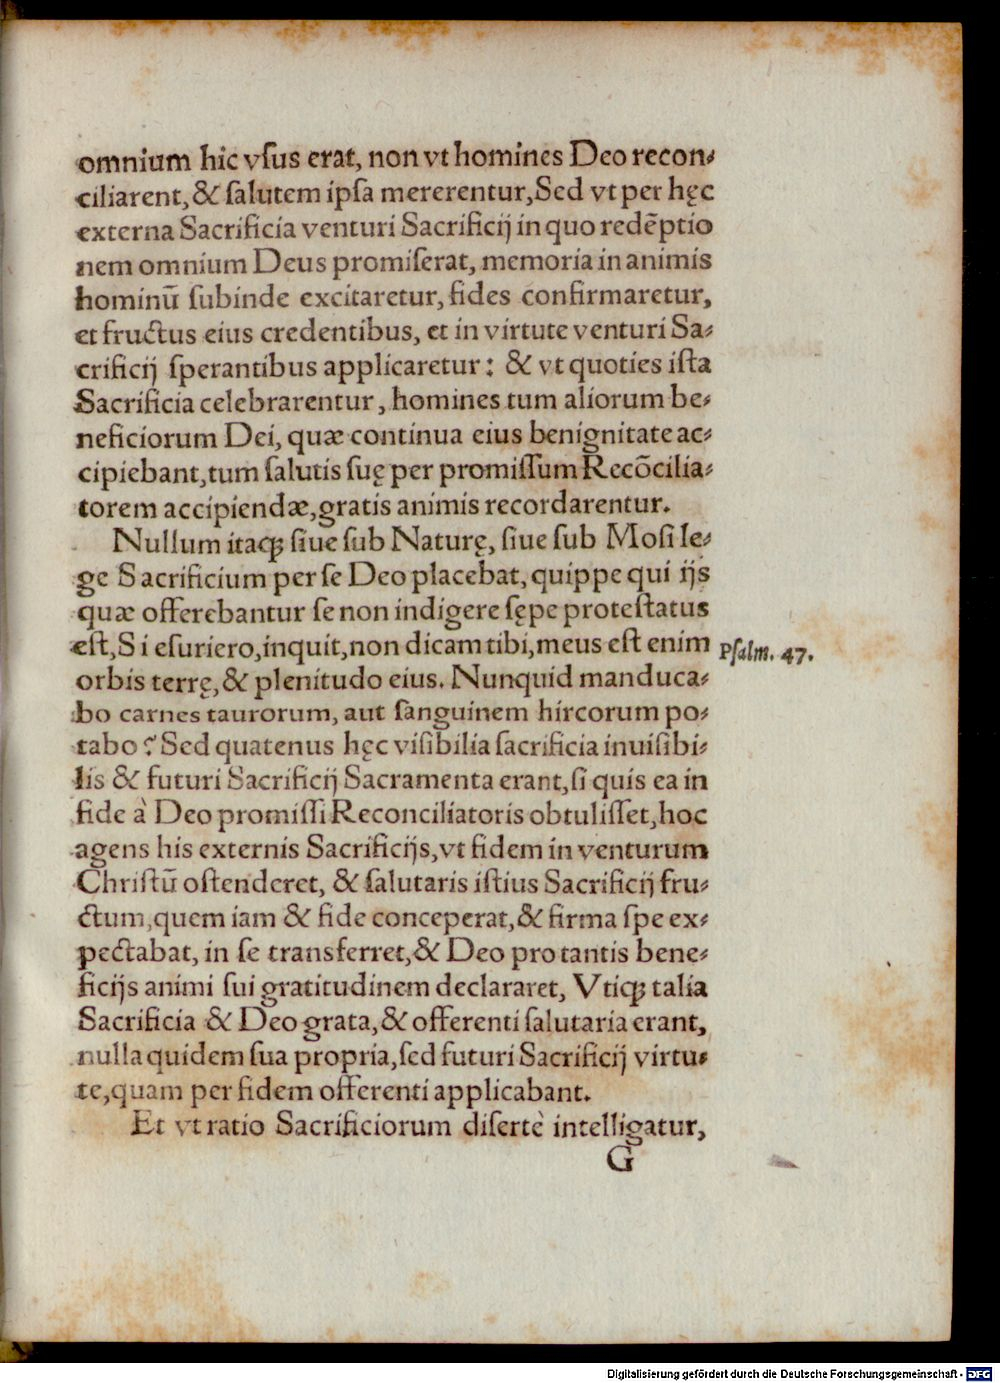 omnium hic vſus erat, non vt homines Deo recon⸗
ciliarent, & ſalutem ipſa mererentur, Sed vt per hęc
externa Sacrificia venturi Sacrificij in quo redēptio
nem omnium Deus promiſerat, memoria in animis
hominū ſubinde excitaretur, fides confirmaretur,
et fructus eius credentibus, et in virtute venturi Sa⸗
crificij ſperantibus applicaretur: & vt quoties iſta
Sacrificia celebrarentur, homines tum aliorum be⸗
neficiorum Dei, quæ continua eius benignitate ac⸗
cipiebant, tum ſalutis ſuę per promiſſum Recōcilia⸗
torem accipiendæ, gratis animis recordarentur.
Nullum itaqꝫ ſiue ſub Naturę, ſiue ſub Moſi le⸗
ge Sacrificium per ſe Deo placebat, quippe qui ijs
quæ offerebantur ſe non indigere ſępe proteſtatus
eſt, Si eſuriero, inquit, non dicam tibi, meus eſt enim
Pſalm. 47.
orbis terrę, & plenitudo eius. Nunquid manduca⸗
bo carnes taurorum, aut ſanguinem hircorum po⸗
tabo? Sed quatenus hęc viſibilia ſacrificia inuiſibi⸗
lis & futuri Sacrificij Sacramenta erant, ſi quis ea in
fide à Deo promiſſi Reconciliatoris obtuliſſet, hoc
agens his externis Sacrificijs, vt fidem in venturum
Chriſtū oſtenderet, & ſalutaris iſtius Sacrificij fru⸗
ctum, quem iam & fide conceperat, & firma ſpe ex⸗
pectabat, in ſe transferret, & Deo pro tantis bene⸗
ficijs animi ſui gratitudinem declararet, Vtiqꝫ talia
Sacrificia & Deo grata, & offerenti ſalutaria erant,
nulla quidem ſua propria, ſed futuri Sacrificij virtu⸗
te, quam per fidem offerenti applicabant.
Et vt ratio Sacrificiorum diſertè intelligatur,
G
Digitalisierung gefördert durch die Deutsche Forschungsgemeinschaft - DFG